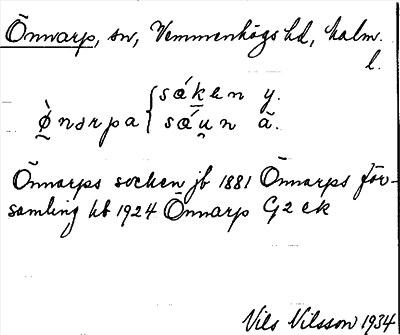 Önnarp, sn, Vemmenhögs hd, Malm.
l.
sɑ́ken y.
ø̀narpa { sɑ́u̯n ä.
Önnarps socken jb 1881 Önnarps för-
samling kb 1924 Önnarp G2 ek
Nils Nilsson 1934